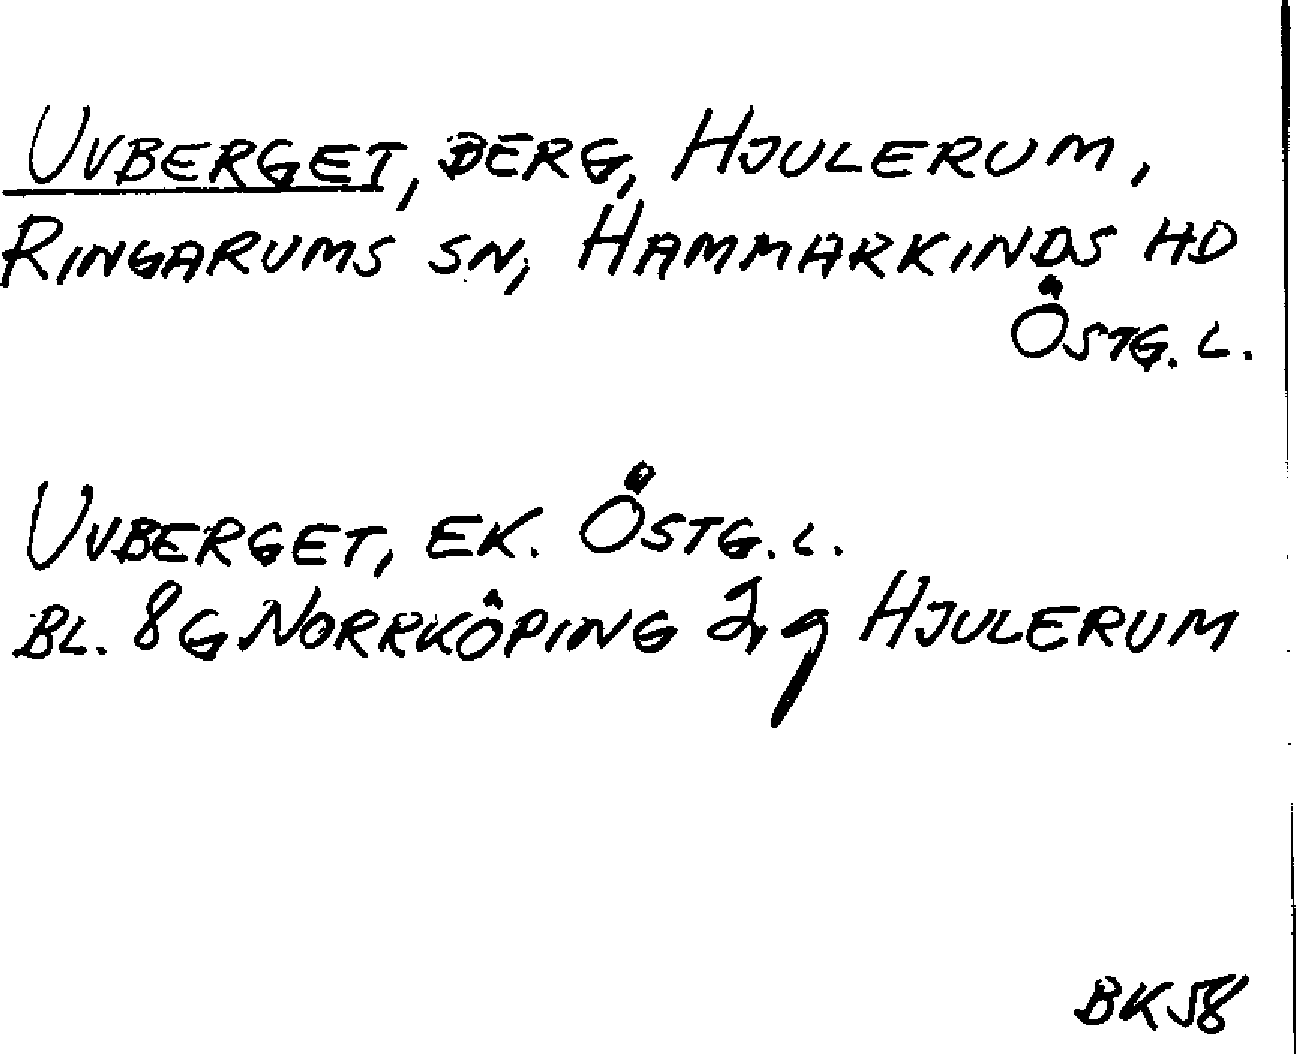 UVBERGET, BERG, HJULERUM,
RINGARUMS SN, HAMMARKINDS HD
ÖSTG. L.
UVBERGET, EK. ÖSTG. L.
BL. 8G NORRKÖPING 2, g HJULERUM
BK58